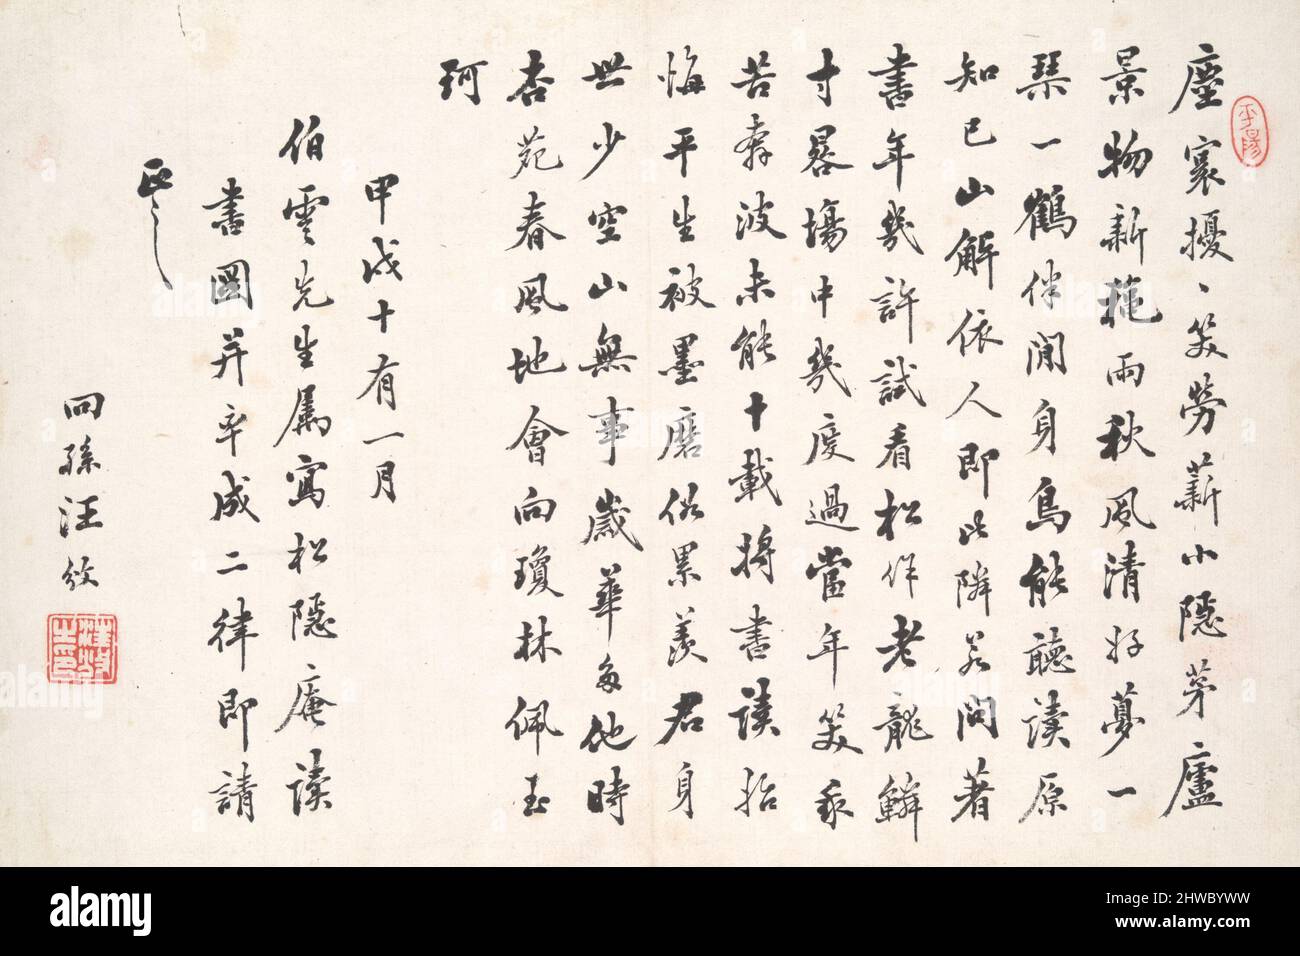 塵寰擾、笑勞薪小隱茅廬
景物新梧雨秋風清好夢一
琴一鶴伴閒身鳥能聽讀原
知己山解依人即此隣若問著
書年幾許試看松作老龍鱗
寸晷場中幾度過當年笑我
苦奔波未能十載將書讀抬
悔平生被墨磨俗累羨君身
世少空山無事歲華多他時
杏苑春風地會向瓊林佩玉
珂
甲戌十有一月
伯雲先生屬寫松隱庵讀
書圖并率成二律即請
正之
回孫汪
alamy
alamy
Image ID: 2HWBYWW
www.alamy.com